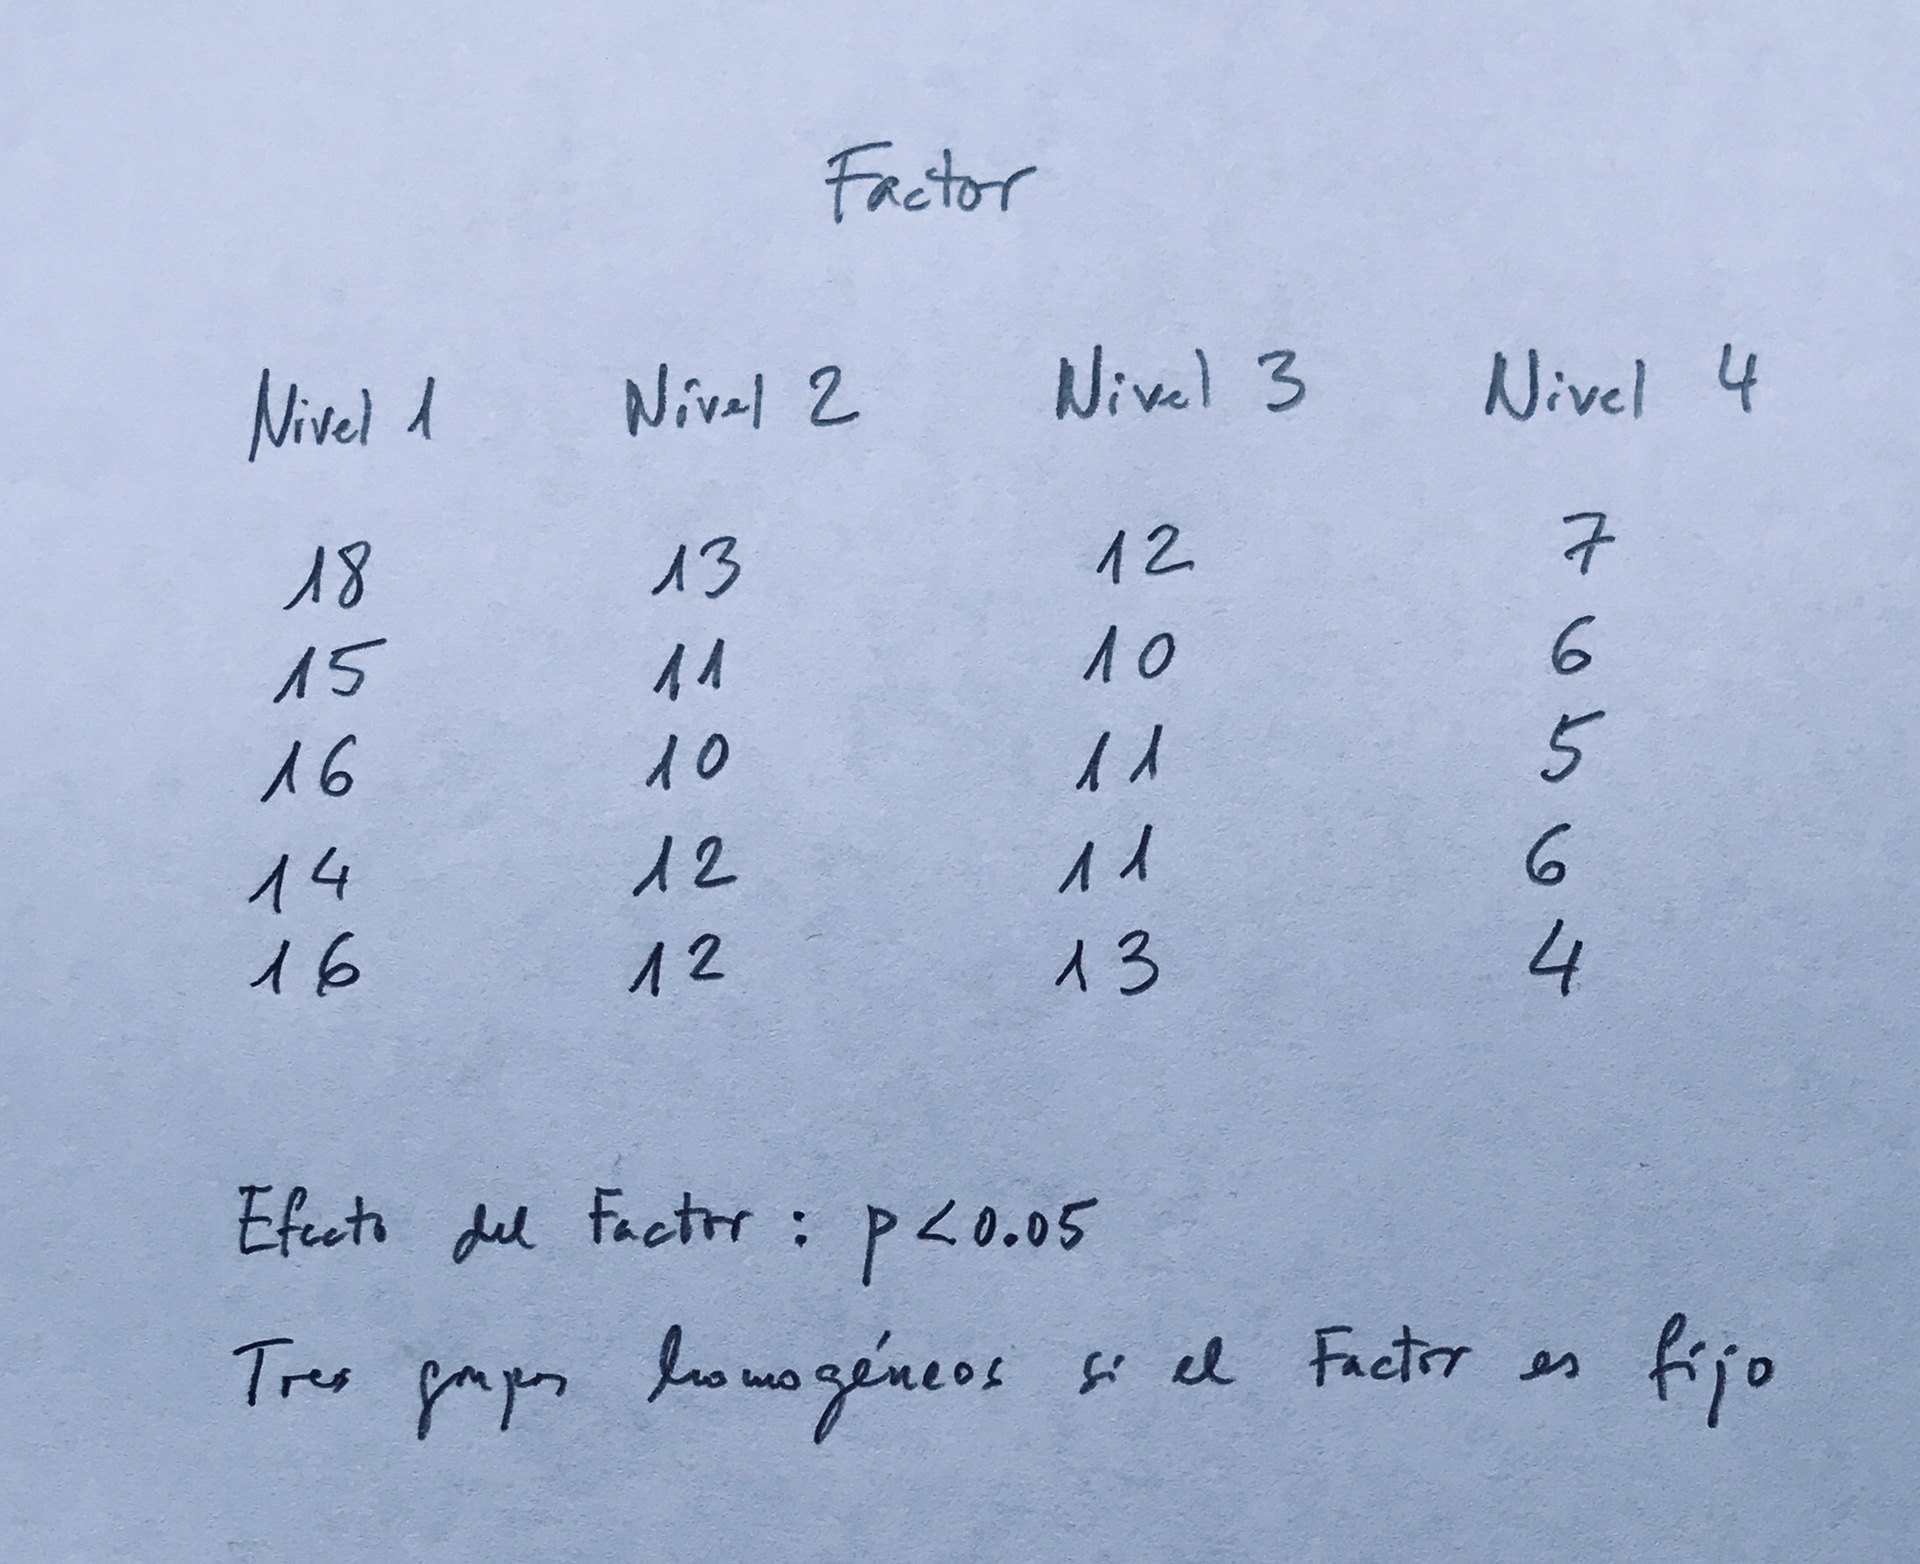 Factor
Nivel 1 Nivel 2 Nivel 3 Nivel 4
18 13 12 7
15 11 10 6
16 10 11 5
14 12 11 6
16 12 13 4
Efecto del Factor : p < 0.05
Tres grupos homogéneos si el Factor es fijo